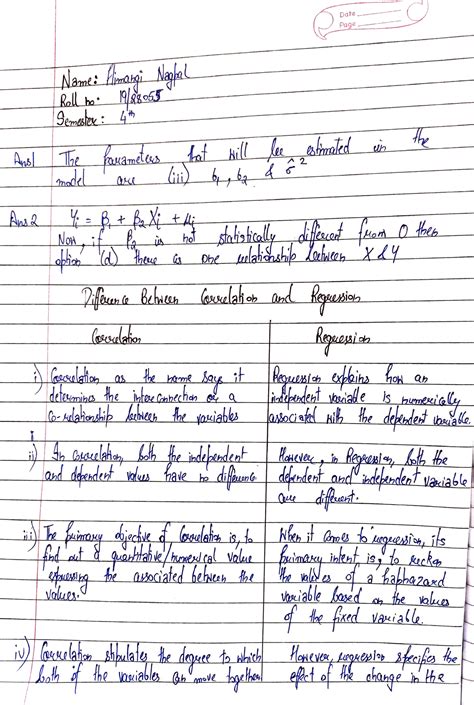 Date
Page
Name: Himangi Nagpal
Roll no: 19/88055
Semester: 4th
Ans1 The parameters that will be estimated in the
model are (iii) b1, b2 & σ̂ 2
Ans 2 Yi = β1 + β2 Xi + μi
Now, if β2 is not statistically different from 0 then
option (d) there is one relationship between X & Y
Difference Between Correlation and Regression
Correlation
Regression
i) Correlation as the name says it
determines the interconnection or a
co-relationship between the variables
Regression explains how an
independent variable is numerically
associated with the dependent variable.
ii) In correlation, both the independent
and dependent values have no difference
However, in Regression, both the
dependent and independent variable
are different.
iii) The primary objective of Correlation is, to
find out a quantitative/numerical value
expressing the associated between the
values.
When it comes to regression, its
primary intent is, to reckon
the values of a haphazard
variable based on the values
of the fixed variable.
iv) Correlation stipulates the degree to which
both of the variables can move together
However, regression specifies the
effect of the change in the